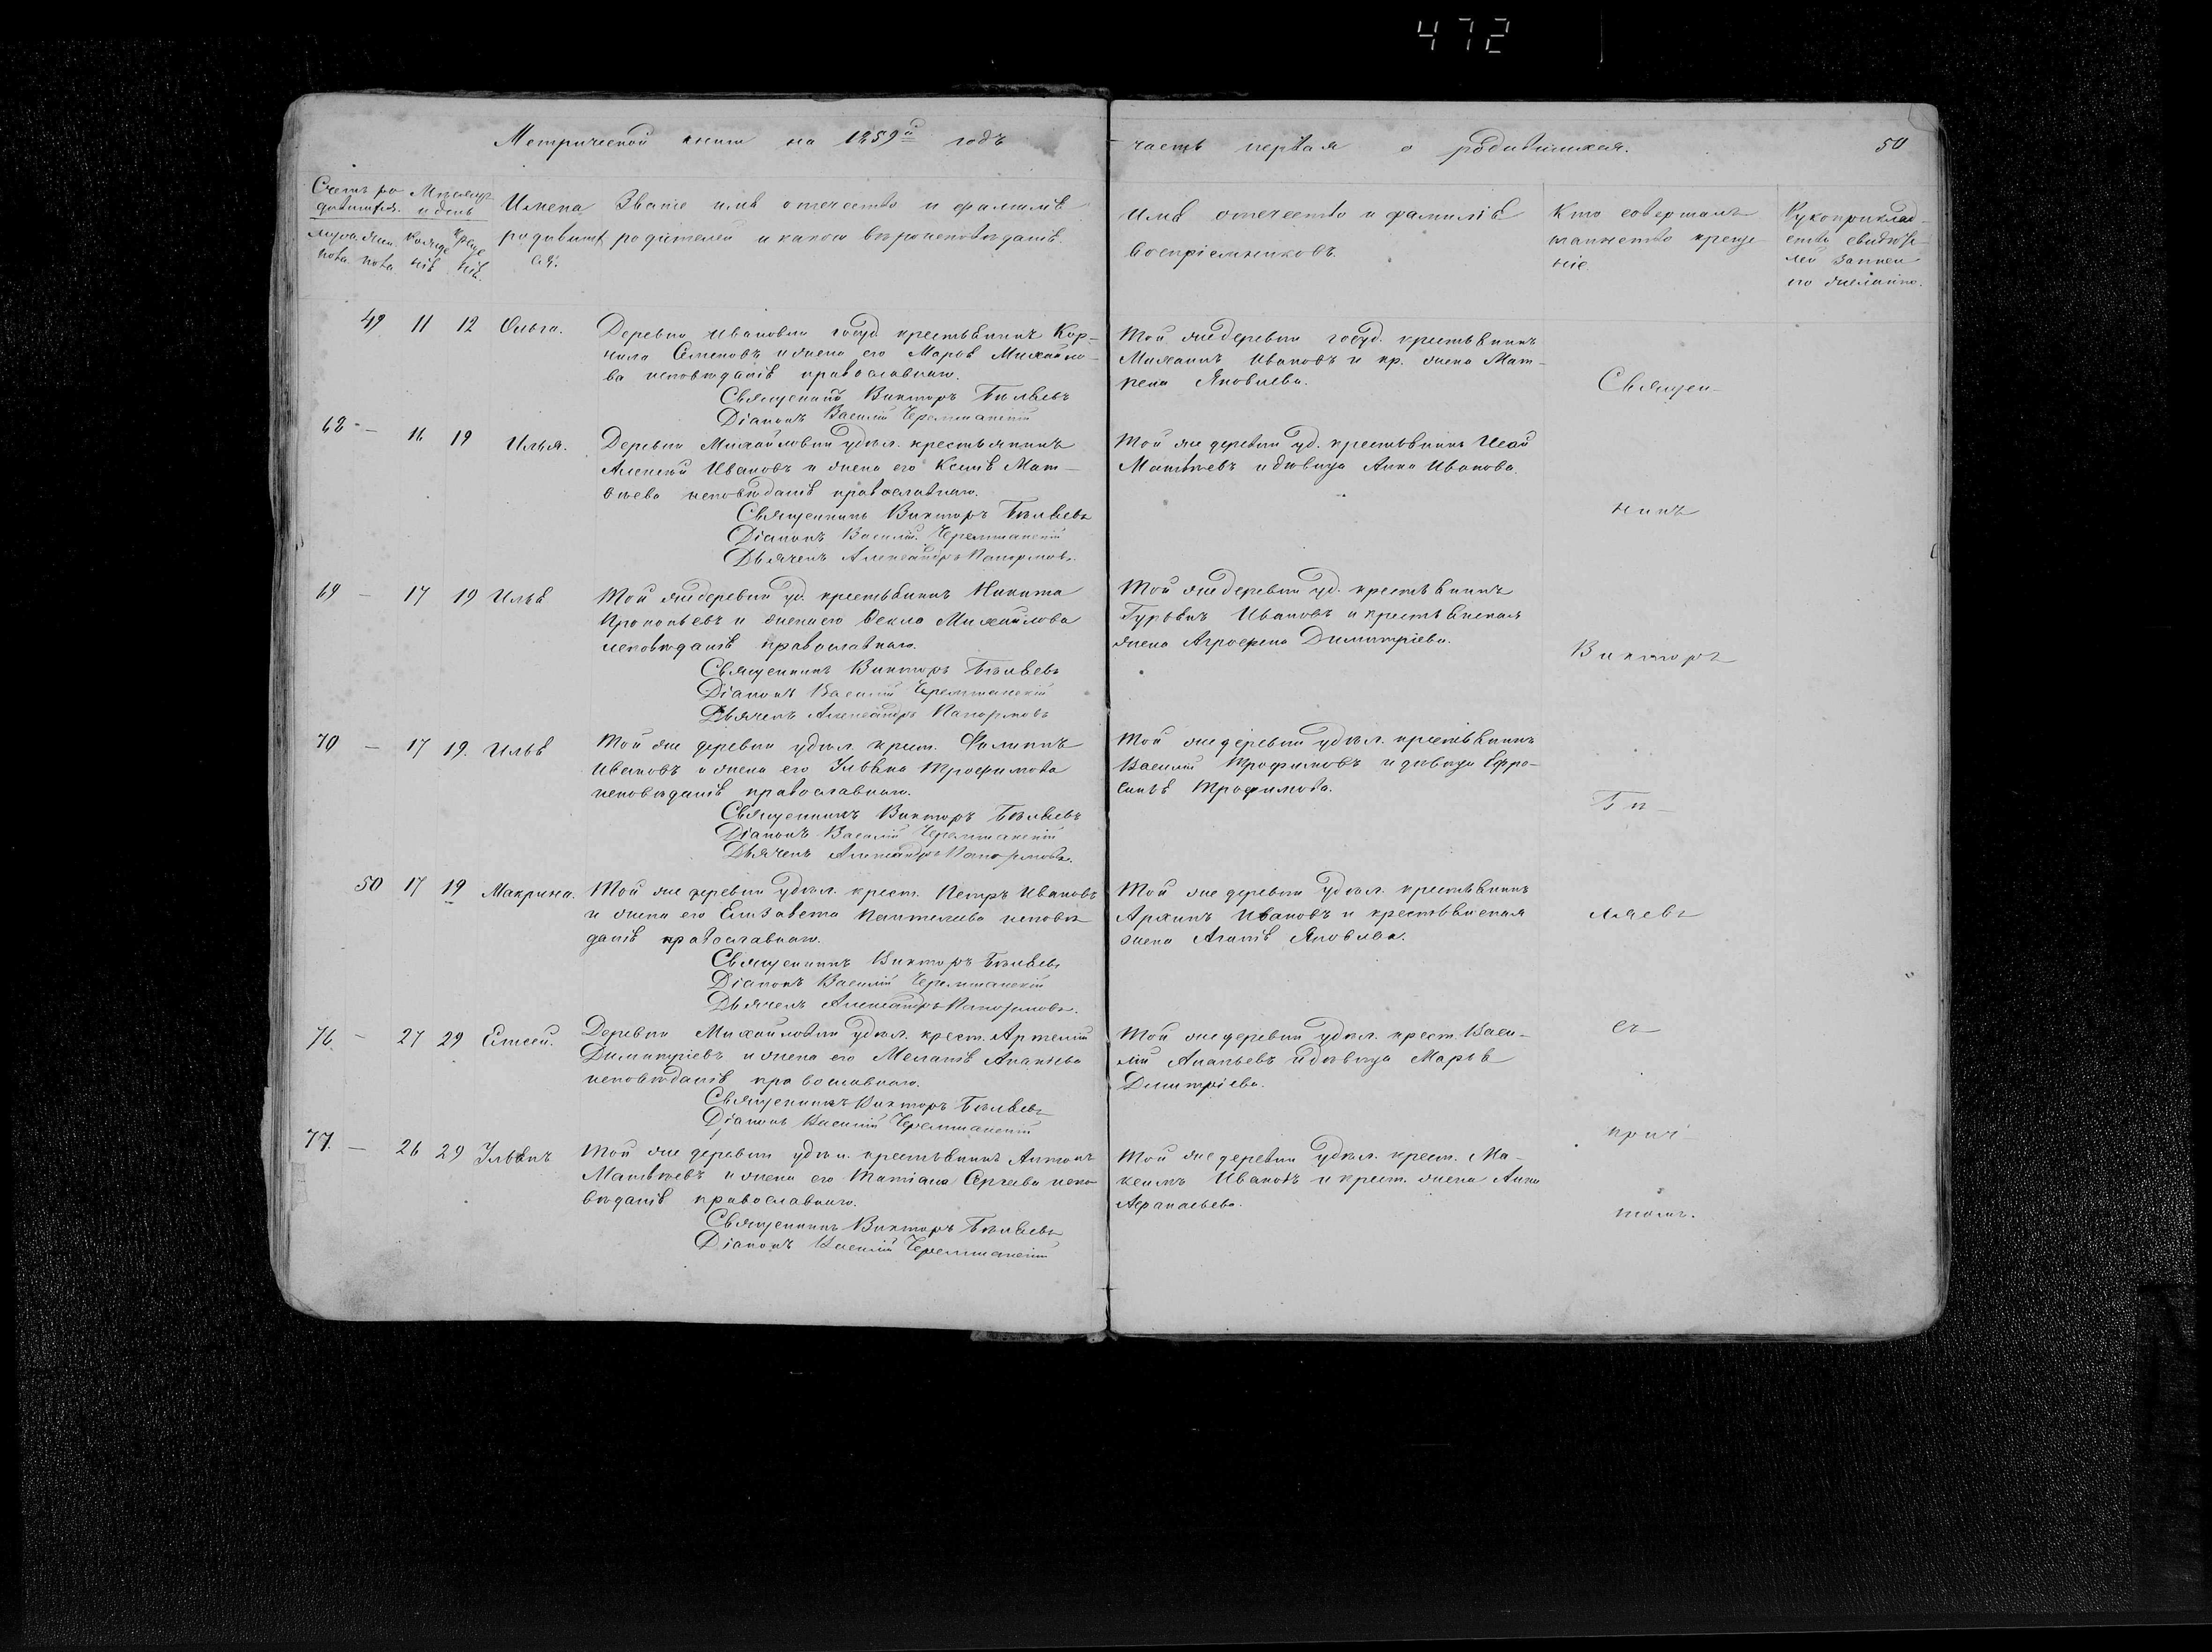 472
Метрической книги на 1859й годъ
часть первая о родившихся.
50
Счетъ ро
дившихся.
мужа
ска
пола
жен
ска
пола
Мѣсяцъ
и день
рожде
нія
креще
нія.
Имена
родивших
ся.
Званіе имя отечество и фамилія
родителей и какого вѣроисповѣданія.
Имя отечество и фамилія
воспріемниковъ.
Кто совершалъ
таинство креще
ніе
Рукоприклад-
ство свидѣте
лей записи
по желанію.
49 11 12 Ольга.
Деревни Ивановки госуд. крестьянинъ Кор-
нила Семеновъ и жена его Марѳа Михайло-
ва исповѣданія православнаго.
Священникъ Викторъ Бѣляевъ
Діаконъ Василій Черемшанскій
Той же деревни госуд. крестьянинъ
Михаилъ Ивановъ и кр. жена Мат-
рена Яковлева.
68 — 16 19 Илья.
Деревни Михайловки удѣл. крестьянинъ
Алексѣй Ивановъ и жена его Ксенія Мат-
вѣева исповѣданія православнаго.
Священникъ Викторъ Бѣляевъ
Діаконъ Василій Черемшанскій
Дьячекъ Александръ
Той же деревни уд. крестьянинъ Исай
Матвѣевъ и дѣвица Анна Иванова.
69 — 17 19 Илья
Той же деревни уд. крестьянинъ Никита
Прокопьевъ и жена его Ѳекла Михайлова
исповѣданія православнаго.
Священникъ Викторъ Бѣляевъ
Діаконъ Василій Черемшанскій
Дьячекъ Александръ
Той же деревни уд. крестьянинъ
Гурьянъ Ивановъ и крестьянская
жена Агрофена Димитріева.
70 — 17 19. Илья
Той же деревни удѣл. крест. Филиппъ
Ивановъ и жена его Ульяна Трофимова
исповѣданія православнаго.
Священникъ Викторъ Бѣляевъ
Діаконъ Василій Черемшанскій
Дьячекъ Александръ
Той же деревни удѣл. крестьянинъ
Василій Трофимовъ и дѣвица Ефро-
синья Трофимова.
50 17 19 Макрина.
Той же деревни удѣл. крест. Петръ Ивановъ
и жена его Елизавета Пантелеева исповѣ
данія православнаго.
Священникъ Викторъ Бѣляевъ
Діаконъ Василій Черемшанскій
Дьячекъ Александръ
Той же деревни удѣл. крестьянинъ
Архипъ Ивановъ и крестьянская
жена Агапія Яковлева.
76. — 27 29 Елисей.
Деревни Михайловки удѣл. крест. Артемій
Димитріевъ и жена его Меланія Ананьева
исповѣданія православнаго.
Священникъ Викторъ Бѣляевъ
Діаконъ Василій Черемшанскій
Той же деревни удѣл. крест. Васи-
лій Ананьевъ и дѣвица Марья
Димитріева.
77. — 26 29 Ульянъ
Той же деревни удѣл. крестьянинъ Антонъ
Матвѣевъ и жена его Татіана Сергѣева испо
вѣданія православнаго.
Священникъ Викторъ Бѣляевъ
Діаконъ Василій Черемшанскій
Той же деревни удѣл. крест. Ма-
ксимъ Ивановъ и крест. жена Анна
Афанасьева.
Священ-
никъ
Викторъ
Бѣ-
ляевъ
съ
прич-
томъ.